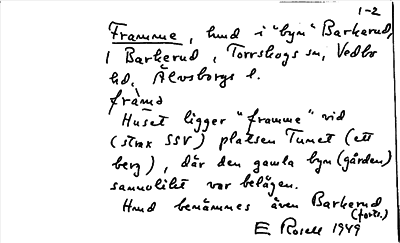 1-2
Framme, hmd i "byn" Barkerud,
1 Barkerud, Torrskogs sn, Vedbo
hd, Älvsborgs l.
fràmə
Huset ligger "framme" vid
(strax SSV) platsen Tunet (ett
berg), där den gamla byn (gården)
sannolikt var belägen.
Hmd benämnes även Barkerud
(forts.)
E Rosell 1949